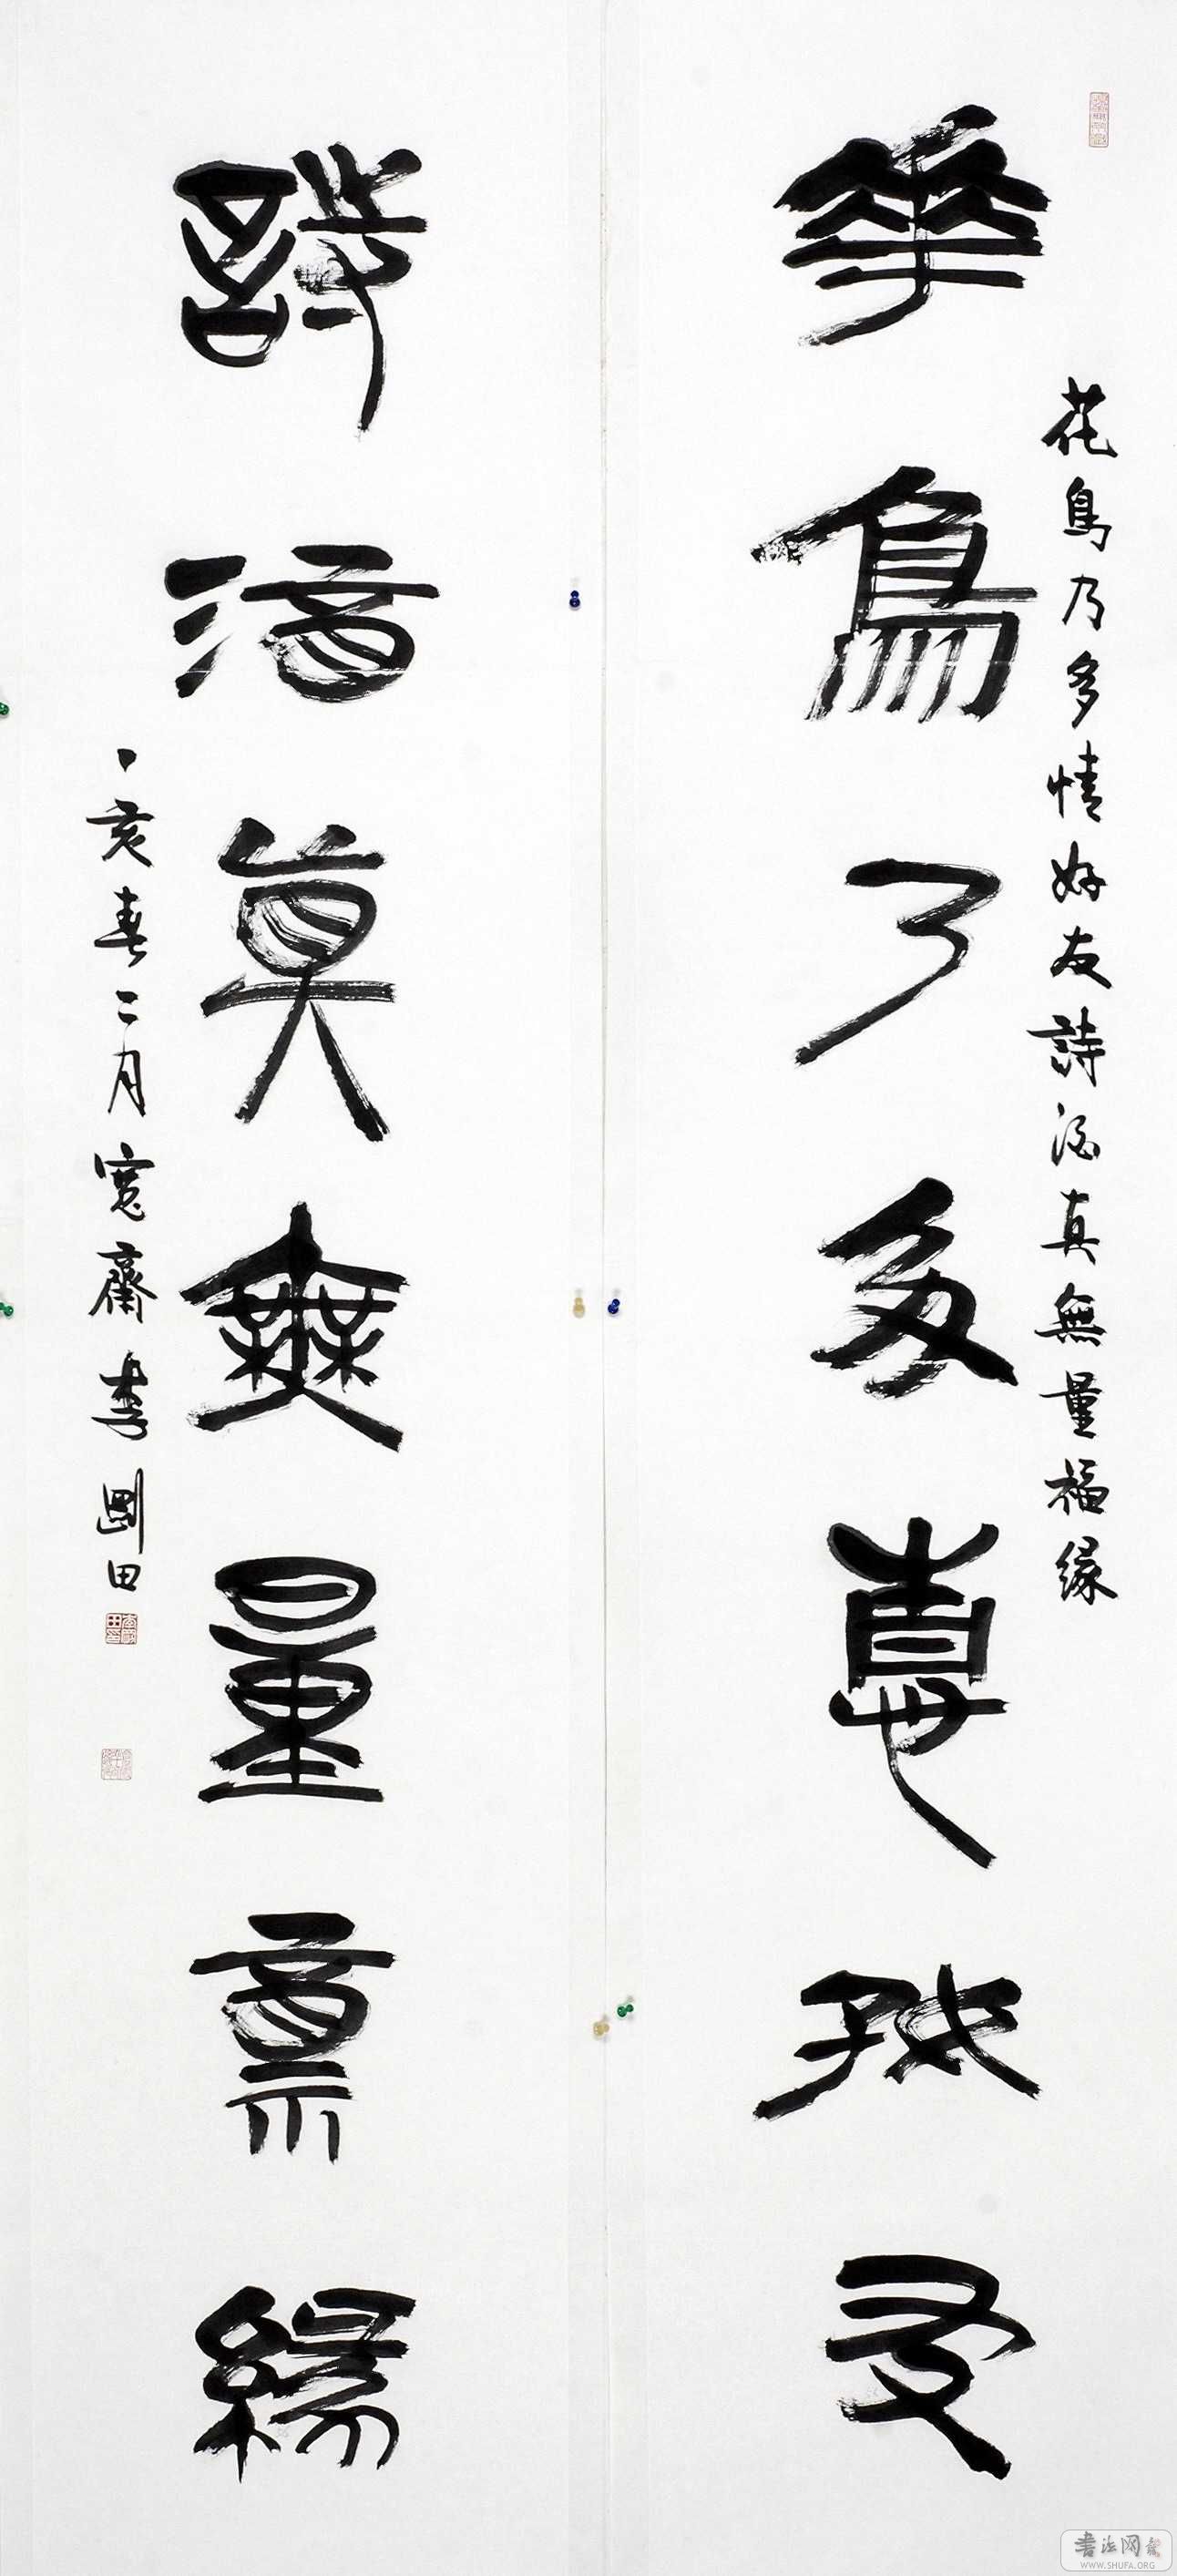 花鳥乃多情好友詩酒真無量福緣
華鳥乃多情好友
詩酒真無量福緣
丁亥春二月寬齋李剛田
书法网
WWW.SHUFA.ORG